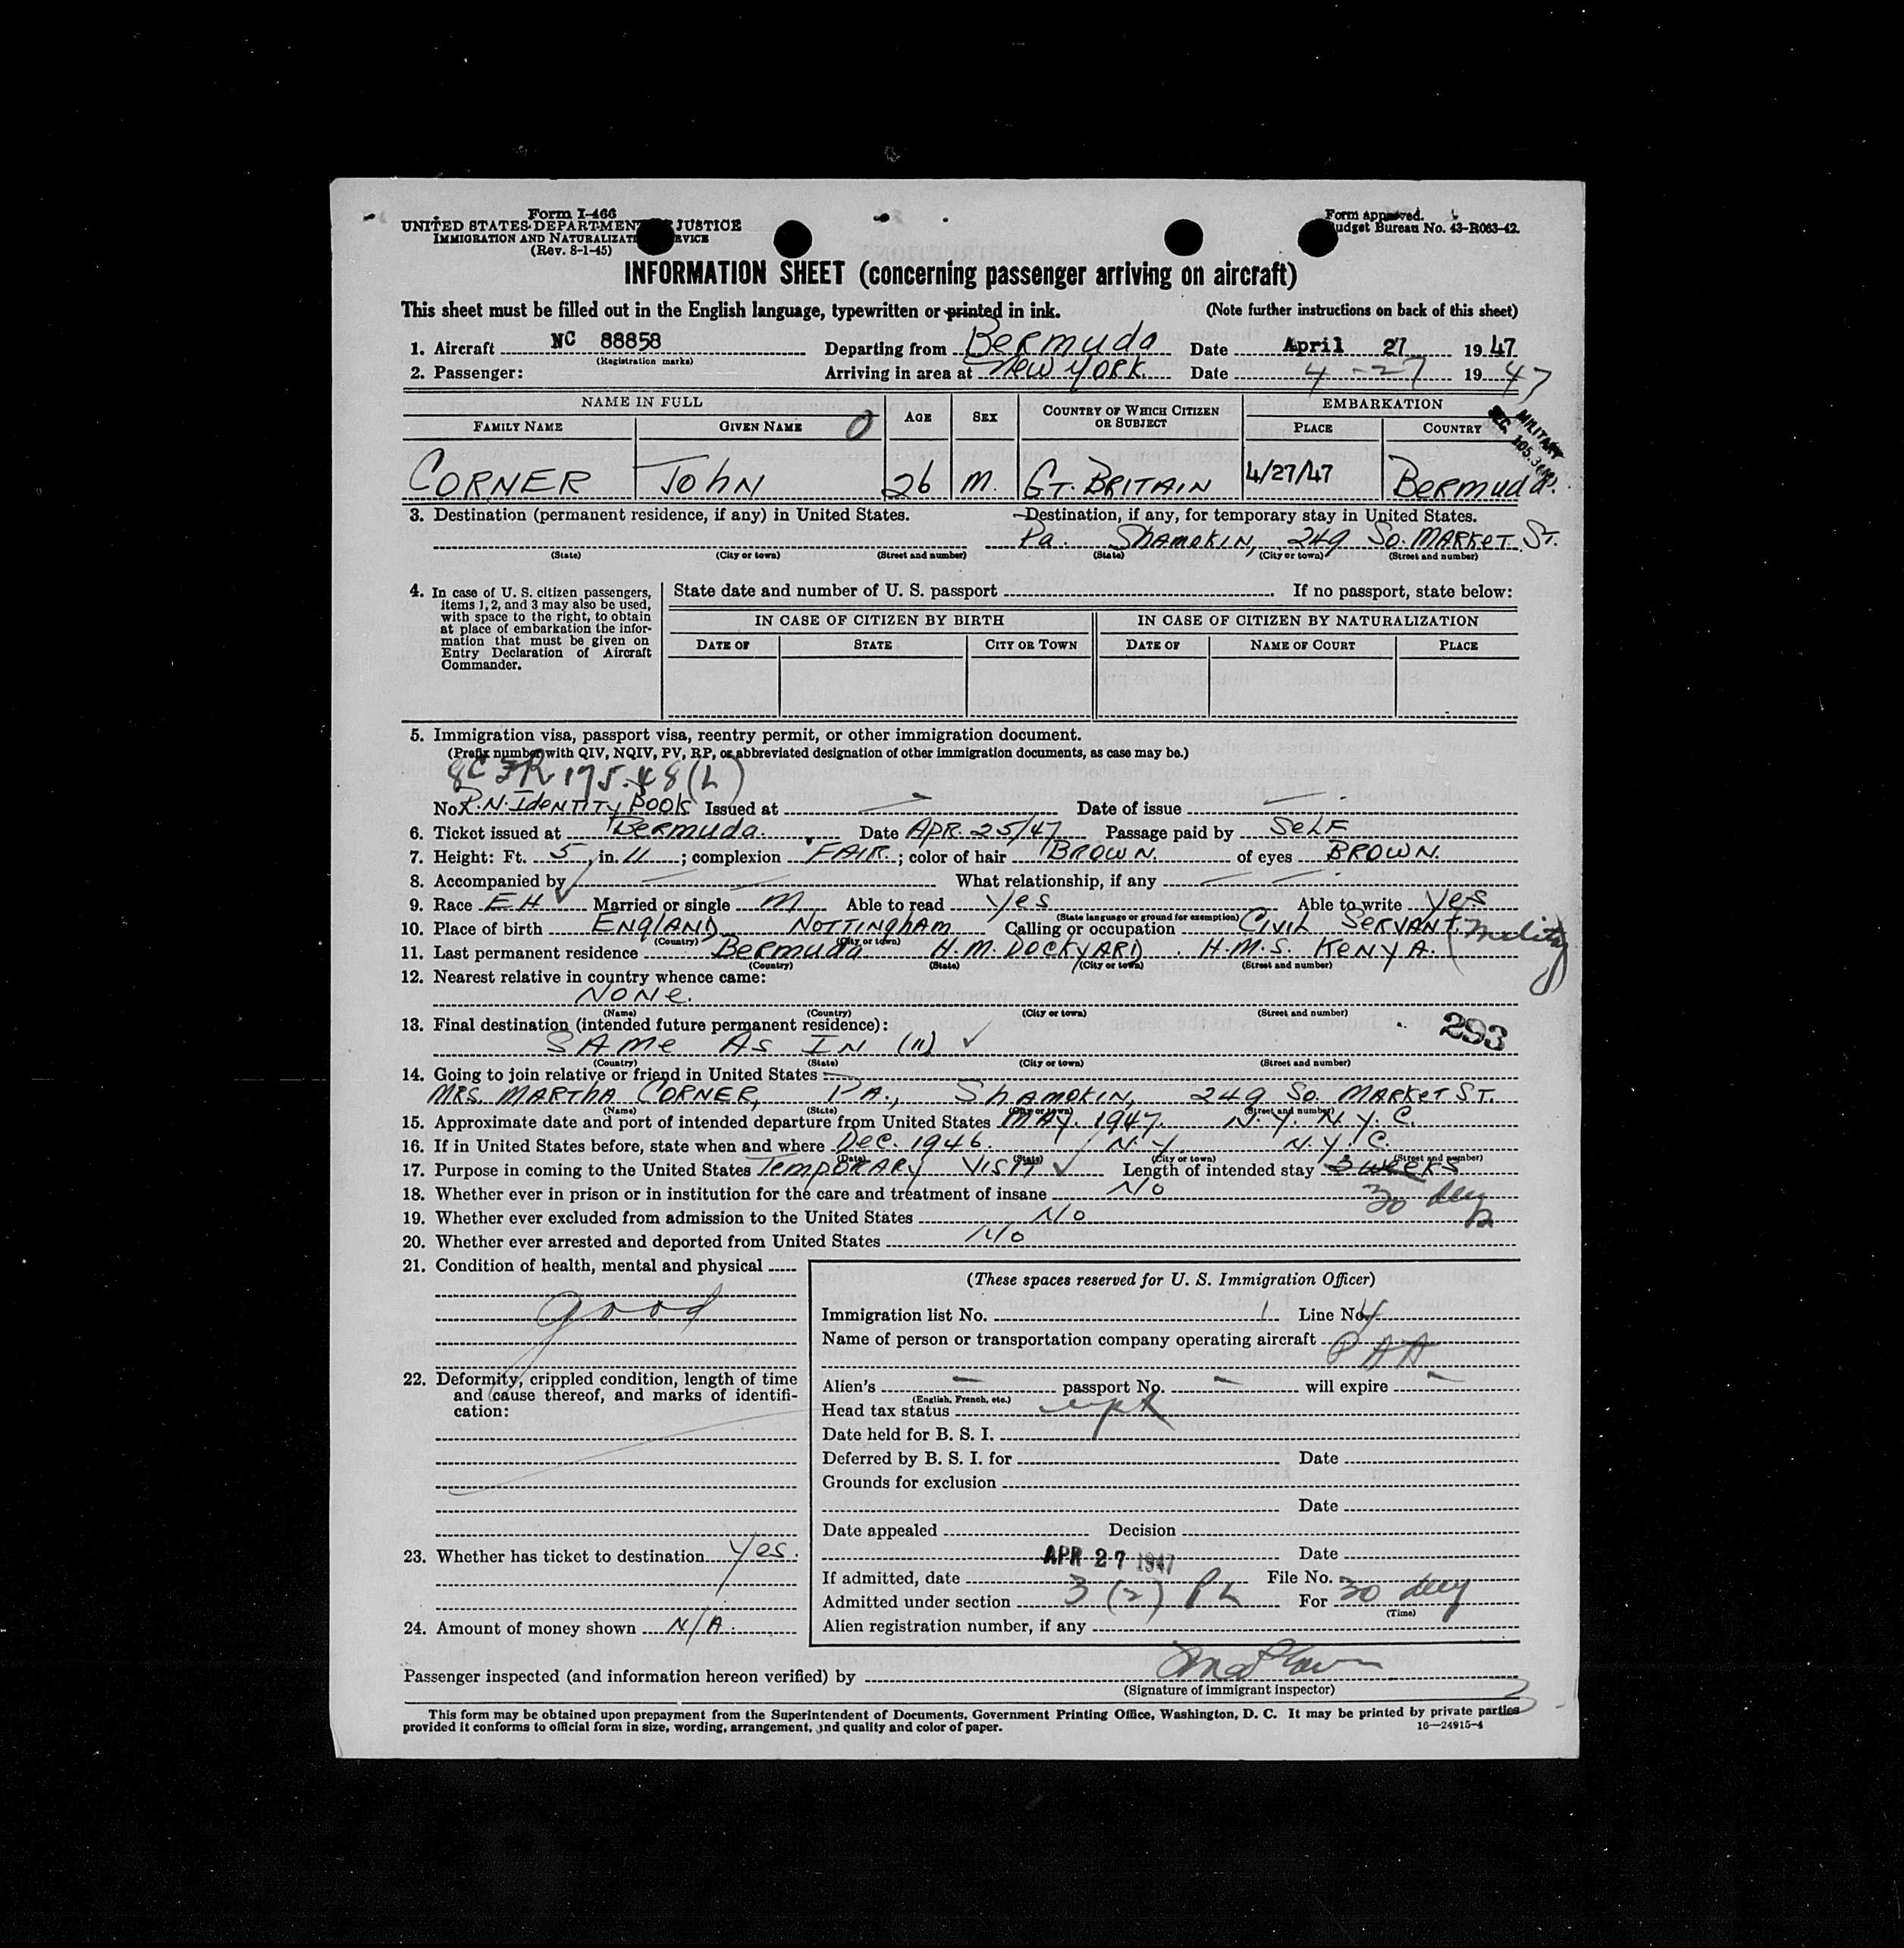 Form I-466
UNITED STATES DEPARTMENT JUSTICE
IMMIGRATION AND NATURALIZATI RVICE
(Rev. 8-1-45)
Form approved.
udget Bureau No. 43-R063-42.
INFORMATION SHEET (concerning passenger arriving on aircraft)
This sheet must be filled out in the English language, typewritten or printed in ink. (Note further instructions on back of this sheet)
1. Aircraft NC 88858 Departing from Bermuda Date April 27 1947
(Registration marks)
2. Passenger: Arriving in area at New York Date 4-27 1947
NAME IN FULL AGE SEX COUNTRY OF WHICH CITIZEN OR SUBJECT EMBARKATION
FAMILY NAME GIVEN NAME PLACE COUNTRY
MILITARY
CORNER JOHN 26 M. GT. BRITAIN 4/27/47 BERMUDA.
3. Destination (permanent residence, if any) in United States. Destination, if any, for temporary stay in United States.
Pa. SHAMOKIN, 249 So. MARKET ST.
(State) (City or town) (Street and number) (State) (City or town) (Street and number)
4. In case of U. S. citizen passengers, items 1, 2, and 3 may also be used, with space to the right, to obtain at place of embarkation the information that must be given on Entry Declaration of Aircraft Commander.
State date and number of U. S. passport If no passport, state below:
IN CASE OF CITIZEN BY BIRTH IN CASE OF CITIZEN BY NATURALIZATION
DATE OF STATE CITY OR TOWN DATE OF NAME OF COURT PLACE
5. Immigration visa, passport visa, reentry permit, or other immigration document.
(Prefix number with QIV, NQIV, PV, RP, or abbreviated designation of other immigration documents, as case may be.)
8 CFR 175.48(L)
No. R.N. IDENTITY BOOK Issued at Date of issue
6. Ticket issued at BERMUDA. Date APR. 25/47 Passage paid by SELF
7. Height: Ft. 5, in. 11; complexion FAIR.; color of hair BROWN. of eyes BROWN.
8. Accompanied by What relationship, if any
9. Race EH Married or single M Able to read Yes Able to write Yes
(State language or ground for exemption)
10. Place of birth ENGLAND NOTTINGHAM Calling or occupation CIVIL SERVANT. (Military
(Country) (City or town)
11. Last permanent residence BERMUDA H.M. DOCKYARD. H.M.S. KENYA.
(Country) (State) (City or town) (Street and number)
12. Nearest relative in country whence came:
NONE.
(Name) (Country) (City or town) (Street and number)
13. Final destination (intended future permanent residence): 293
SAME AS IN (11)
(Country) (State) (City or town) (Street and number)
14. Going to join relative or friend in United States
MRS. MARTHA CORNER, PA., SHAMOKIN, 249 SO. MARKET ST.
(Name) (State) (City or town) (Street and number)
15. Approximate date and port of intended departure from United States MAY. 1947. N.Y. N.Y.C.
16. If in United States before, state when and where DEC. 1946. N.Y. N.Y.C.
(Date) (State) (City or town) (Street and number)
17. Purpose in coming to the United States TEMPORARY VISIT Length of intended stay 3 WEEKS
30 days
18. Whether ever in prison or in institution for the care and treatment of insane No
19. Whether ever excluded from admission to the United States No
20. Whether ever arrested and deported from United States No
21. Condition of health, mental and physical
good
22. Deformity, crippled condition, length of time and cause thereof, and marks of identification:
23. Whether has ticket to destination Yes.
24. Amount of money shown N/A.
(These spaces reserved for U. S. Immigration Officer)
Immigration list No. 1 Line No. 4
Name of person or transportation company operating aircraft PAA
Alien's passport No. will expire
(English, French, etc.)
Head tax status
Date held for B. S. I.
Deferred by B. S. I. for Date
Grounds for exclusion
Date
Date appealed Decision
Date
APR 27 1947
If admitted, date File No.
Admitted under section 3 (2) PL For 30 days
(Time)
Alien registration number, if any
Passenger inspected (and information hereon verified) by
(Signature of immigrant inspector)
This form may be obtained upon prepayment from the Superintendent of Documents, Government Printing Office, Washington, D. C. It may be printed by private parties
provided it conforms to official form in size, wording, arrangement, and quality and color of paper. 16—24915-4